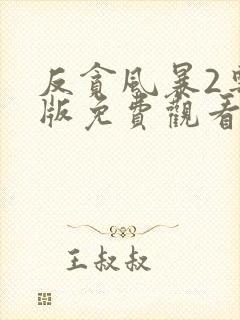 反貪風暴2
版免費觀看
王叔叔